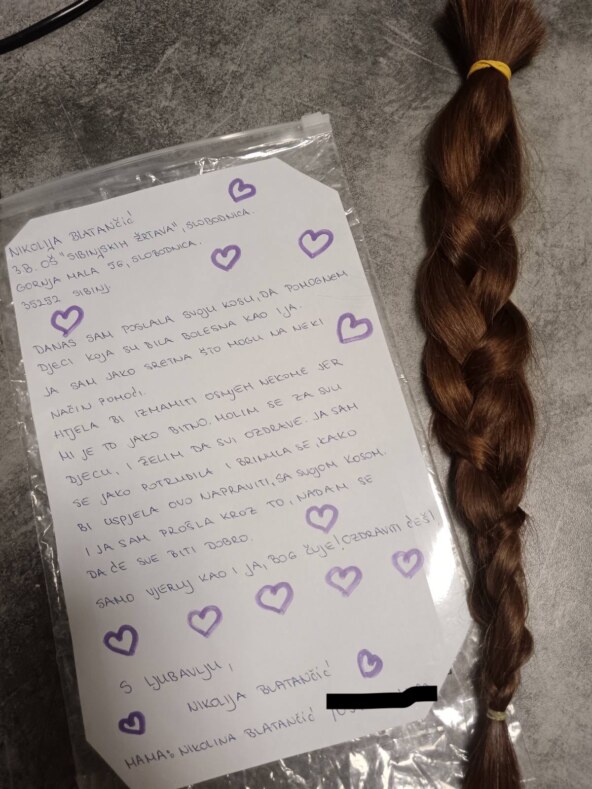 NIKOLIJA BLATANČIĆ
3B. OŠ "SIBINJSKIH ŽRTAVA", SLOBODNICA.
GORNJA MALA JG, SLOBODNICA.
35252 SIBINJ.
DANAS SAM POSLALA SVOJU KOSU, DA POMOGNEM
DJECI KOJA SU BILA BOLESNA KAO I JA.
JA SAM JAKO SRETNA ŠTO MOGU NA NEKI
NAČIN POMOĆI.
HTJELA BI IZMAMITI OSMJEH NEKOME JER
MI JE TO JAKO BITNO. MOLIM SE ZA SVU
DJECU, I ŽELIM DA SVI OZDRAVE. JA SAM
SE JAKO POTRUDILA I BRINULA SE, KAKO
BI USPJELA OVO NAPRAVITI, SA SVOJOM KOSOM.
I JA SAM PROŠLA KROZ TO, NADAM SE
DA ĆE SVE BITI DOBRO.
SAMO VJERUJ KAO I JA, BOG ČUJE! OZDRAVITI ĆEŠ!
S LJUBAVLJU,
NIKOLIJA BLATANČIĆ
MAMA: NIKOLINA BLATANČIĆ